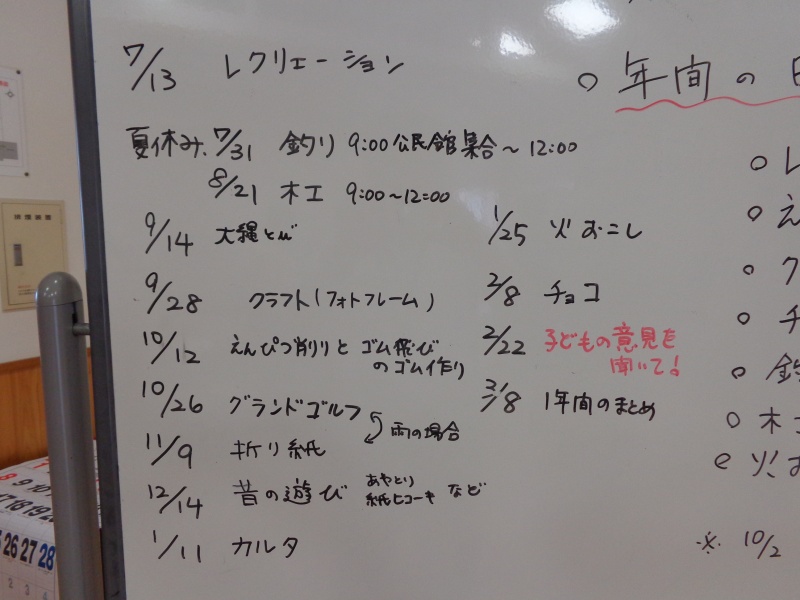 7/13 レクリエーション
夏休み、7/31 釣り 9:00公民館集合～12:00
8/21 木工 9:00～12:00
9/14 大縄とび
9/28 クラフト(フォトフレーム)
10/12 えんぴつ削りと ゴム飛び
のゴム作り
10/26 グランドゴルフ
雨の場合
11/9 折り紙
12/14 昔の遊び あやとり
紙ヒコーキ など
1/11 カルタ
1/25 火おこし
2/8 チョコ
2/22 子どもの意見を
聞いて！
3/8 1年間のまとめ
○ 年間の
○ レ
○ え
○ ク
○ チ
○ 釣
○ 木工
○ 火お
※ 10/2
26 27 28